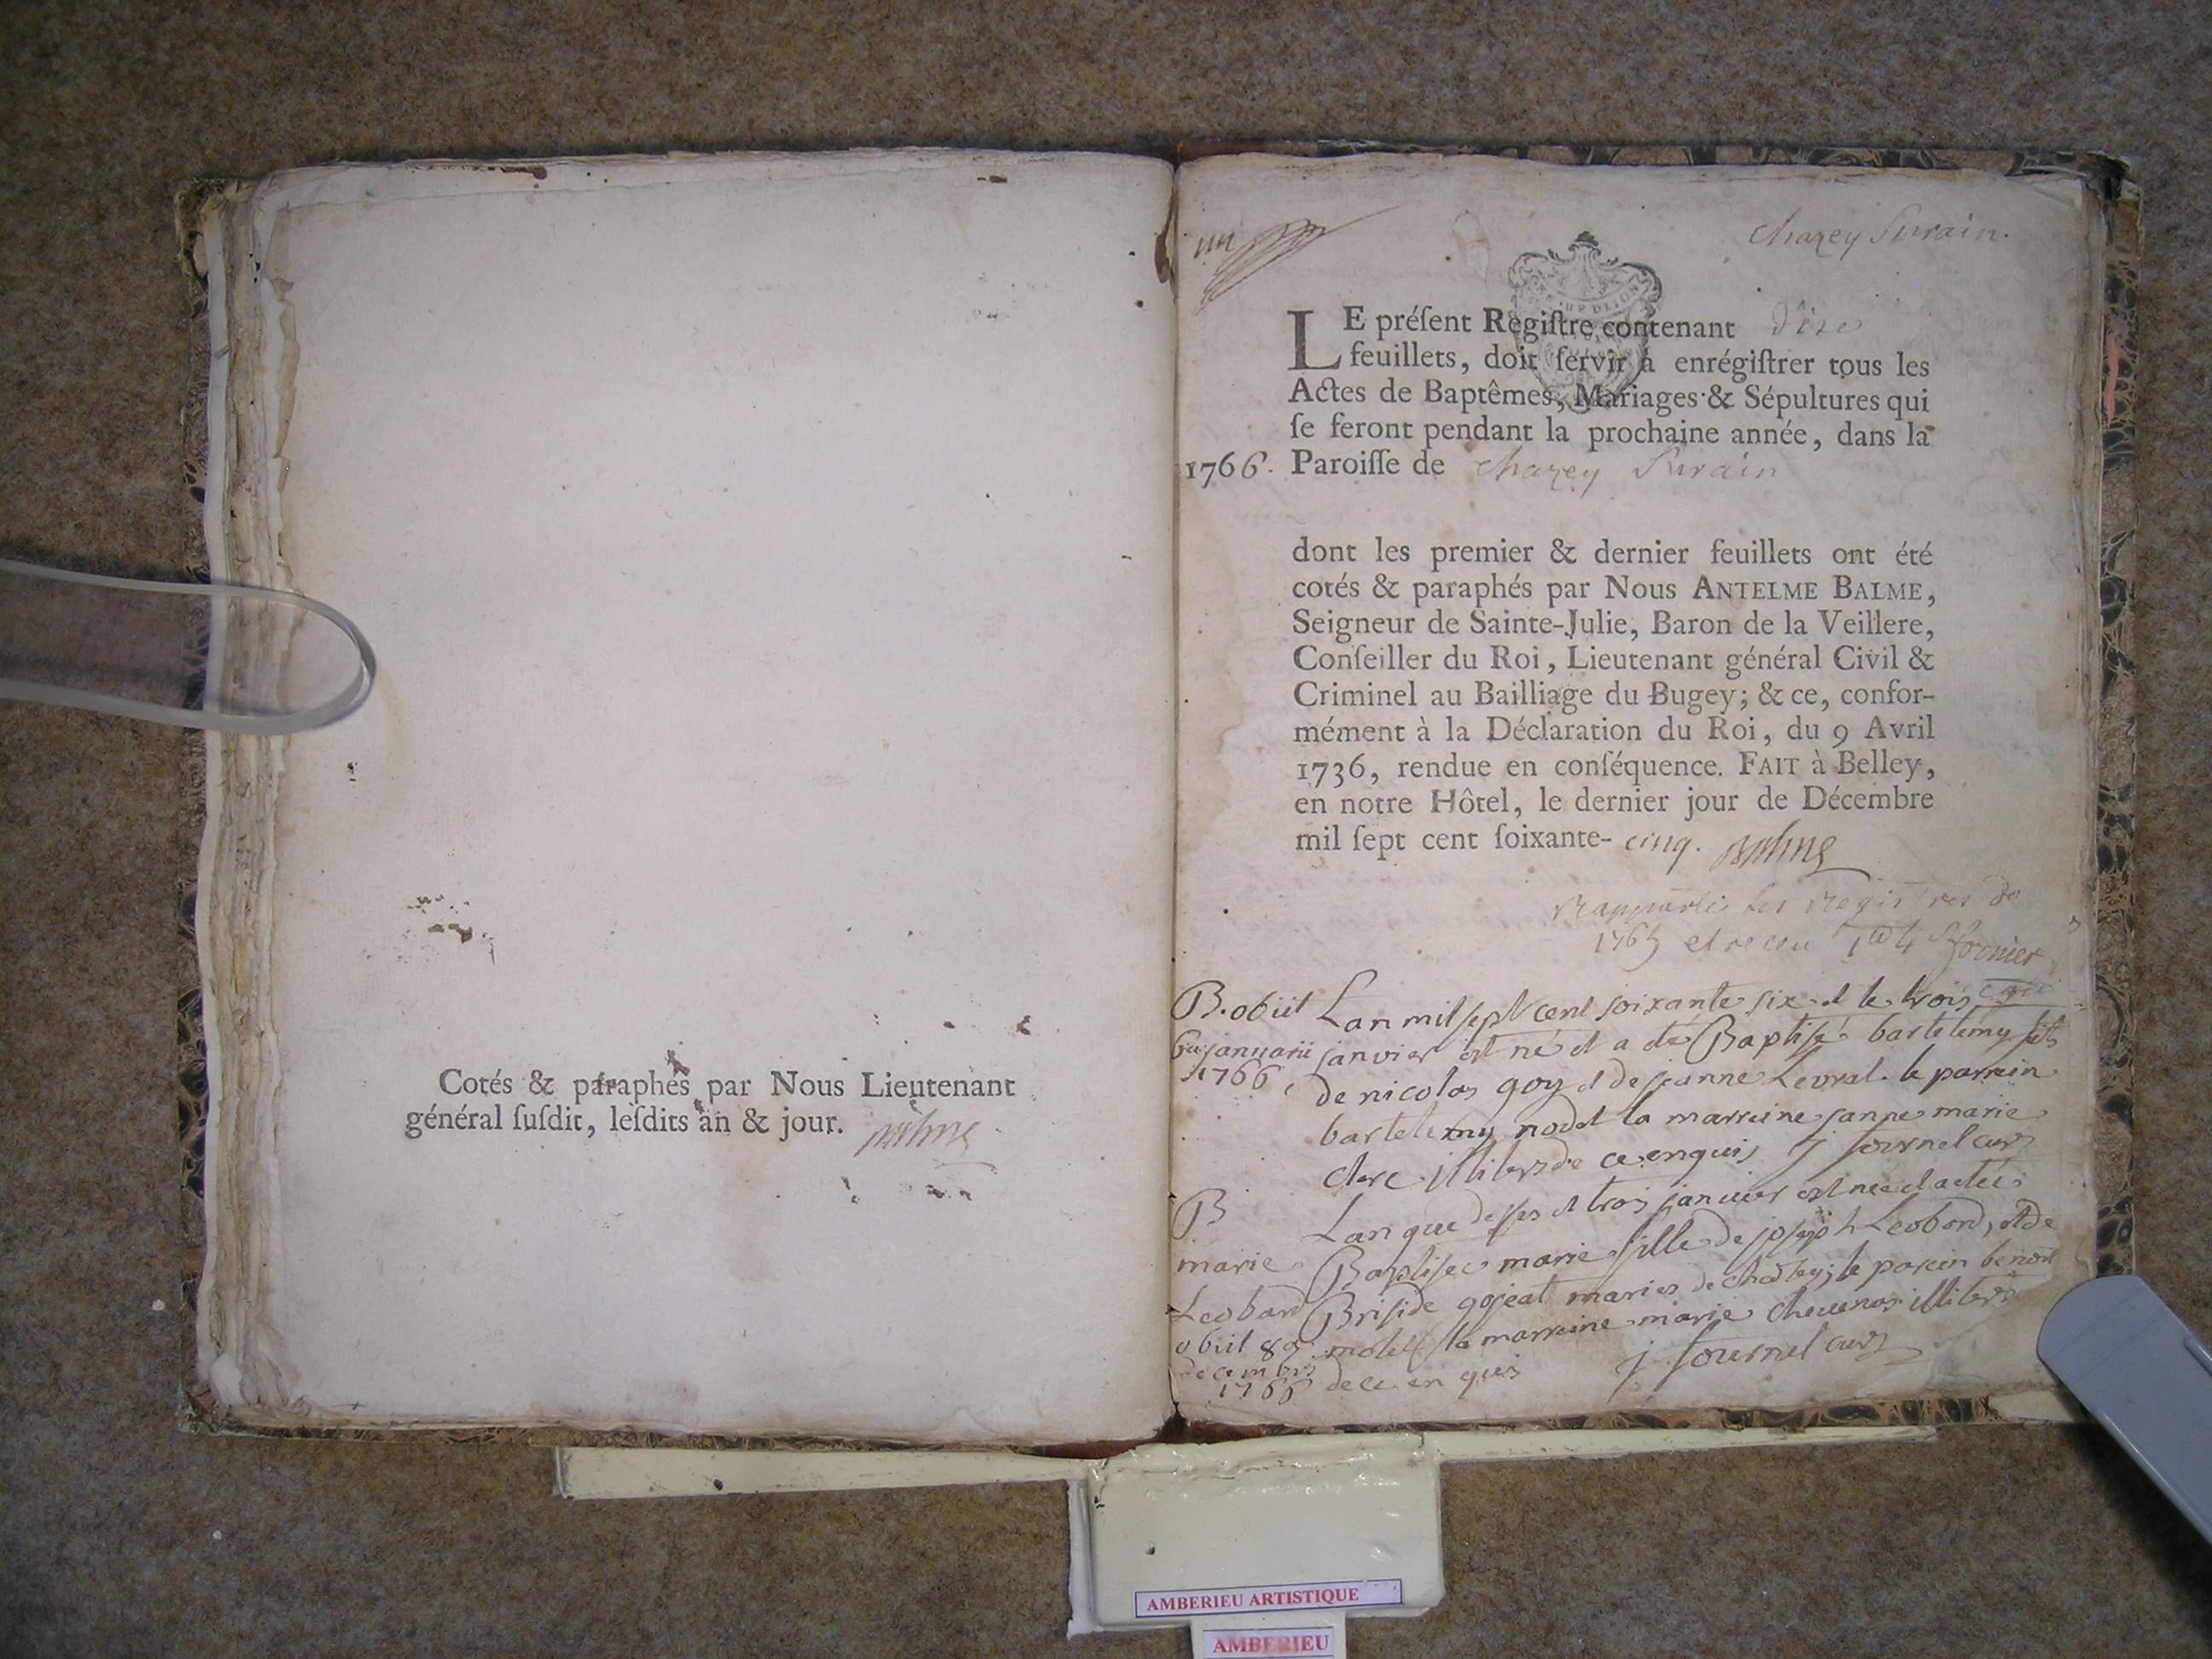 Cotés & paraphés par Nous Lieutenant
général ſuſdit, leſdits an & jour.
Balme
un
chazey Surain.
LE préſent Regiſtre contenant dix
feuillets, doit ſervir à enrégiſtrer tous les
Actes de Baptêmes, Mariages & Sépultures qui
ſe feront pendant la prochaine année, dans la
1766. Paroiſſe de chazey Surain
dont les premier & dernier feuillets ont été
cotés & paraphés par Nous ANTELME BALME,
Seigneur de Sainte-Julie, Baron de la Veillere,
Conſeiller du Roi, Lieutenant général Civil &
Criminel au Bailliage du Bugey; & ce, confor-
mément à la Déclaration du Roi, du 9 Avril
1736, rendue en conſéquence. FAIT à Belley,
en notre Hôtel, le dernier jour de Décembre
mil ſept cent ſoixante- cinq. Balme
rapporté les registres de
1765 et receu
B. obiit
januarii
1766
Lan mil sept cent soixante six et le trois
janvier est né et a eté Baptisé bartelemy fils
de nicolas goy et de jeanne Levrat. le parrein
bartelemy nodet la marreine janne marie
clerc illiterés de ce enquis j fournel curé
B
marie
Leobard
obiit 8a
decembris
1766
Lan que dessus et trois janvier est née et a eté
Baptisee marie fille de joseph Leobard, et de
Briside gojeat mariés de chazey; le parein benoit
molet la marreine marie chevenas illiterés
de ce en quis j fournel curé
AMBERIEU ARTISTIQUE
AMBERIEU